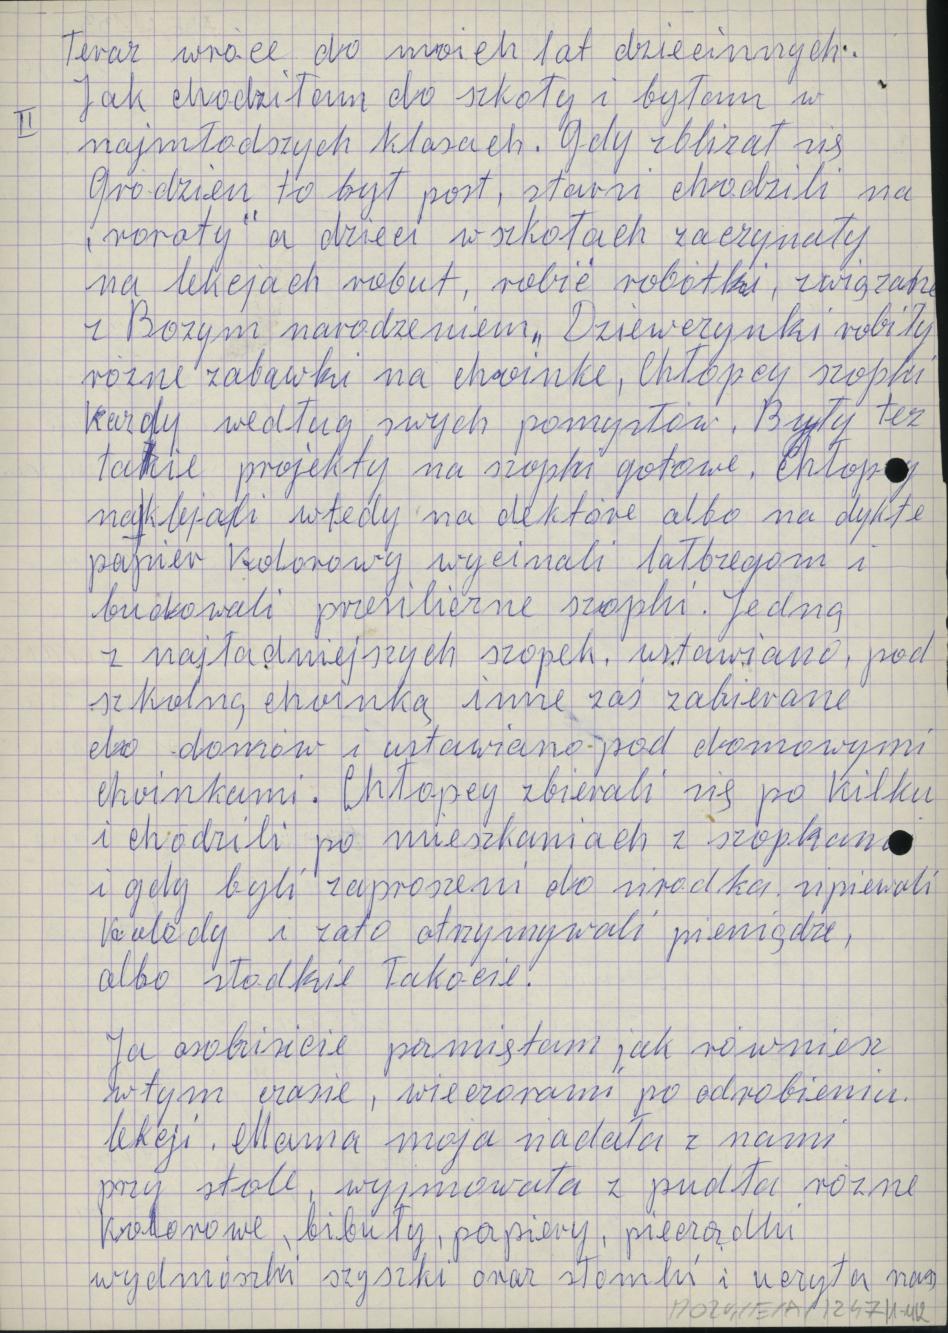 Teraz wróce do moich lat dziecinnych.
Jak chodziłam do szkoły i byłam w
II
najmłodszych klasach. Gdy zbliżał się
Grodzień to był post, starsi chodzili na
„roraty" a dzieci w szkołach zaczynały
na lekcjach robut, robić robótki, związane
z Bożym narodzeniem„ Dziewczynki robiły
różne zabawki na choinke, Chłopcy szopki
każdy według swych pomysłów. Były też
takie projekty na szopki gotowe. Chłopcy
naklejali wtedy na dektóre albo na dykte
papier kolorowy wycinali łałbzegom i
budowali prześliczne szopki. Jedną
z najładniejszych szopek, ustawiano, pod
szkolną choinką inne zaś zabierane
do domów i ustawiano pod domowymi
choinkami. Chłopcy zbierali się po kilku
i chodzili po mieszkaniach z szopkami
i gdy byli zaproszeni do środka śpiewali
kolędy i zato otrzymywali pieniądze,
albo słodkie łakocie.
Ja osobiście pamiętam jak również
wtym czasie, wieczorami po odrobieniu
lekcji. Mama moja siadała z nami
przy stole, wyjmowała z pudła różne
kolorowe, bibuły, papiery, piecządki
wydmószki szyszki oraz słomki i uczyła nas